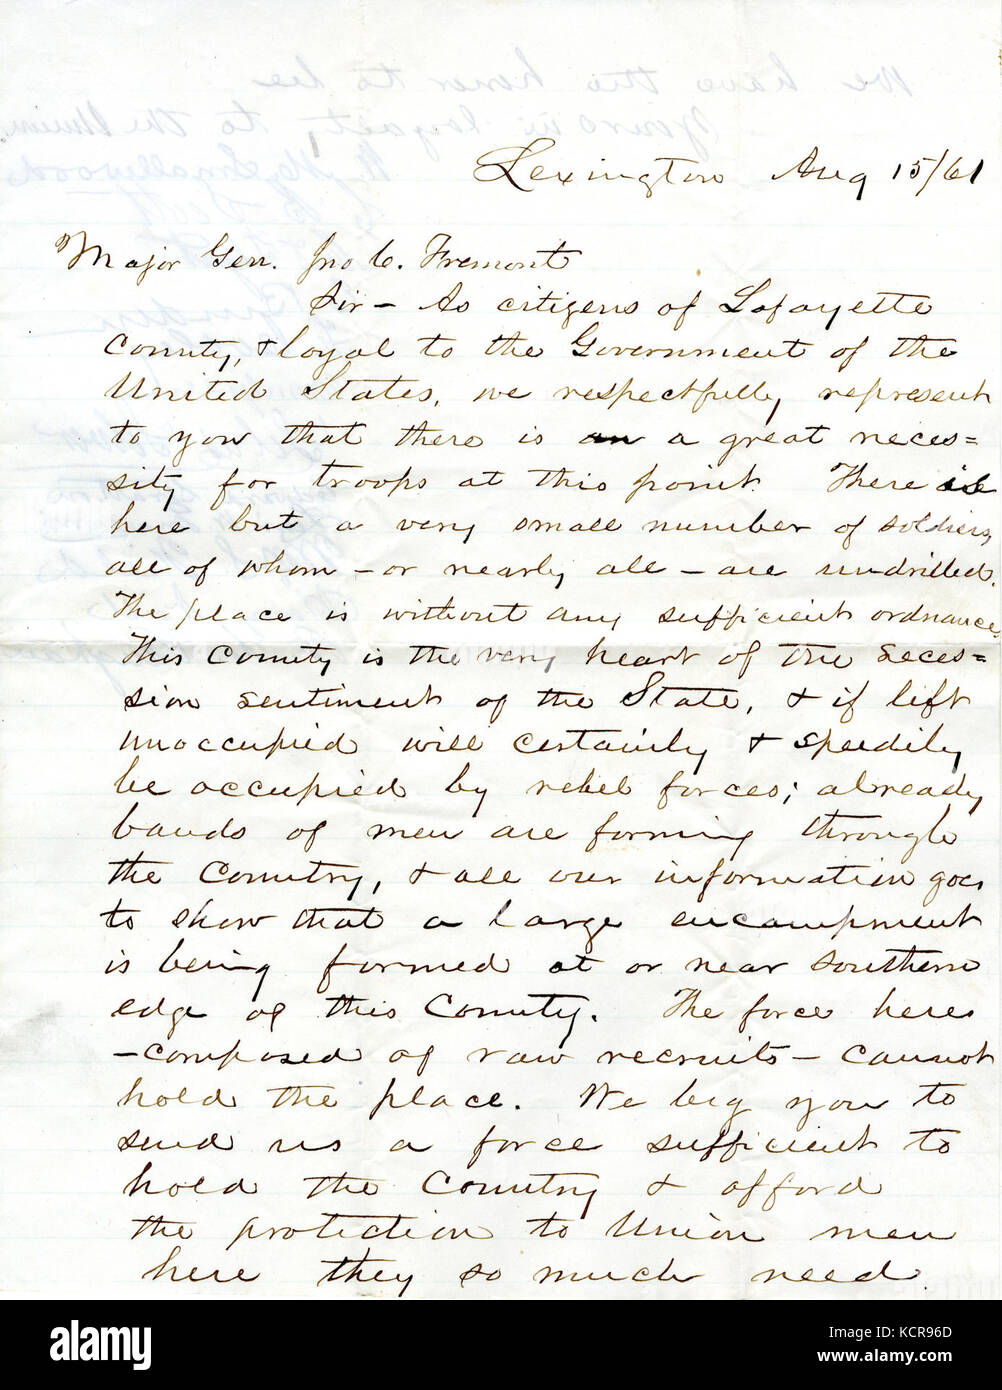 Lexington Aug 15/61
Major Gen. Jno C. Fremont
Sir - As citizens of Lafayette
County, & loyal to the Government of the
United States, we respectfully represent
to you that there is a great neces=
sity for troops at this point. There is
here but a very small number of soldiers,
all of whom - or nearly all - are undrilled.
The place is without any sufficient ordnance.
This County is the very heart of the seces=
sion sentiment of the State, & if left
unoccupied will certainly & speedily
be occupied by rebel forces; already
bands of men are forming through
the Country, & all our information goes
to show that a large encampment
is being formed at or near southern
edge of this County. The force here
- composed of raw recruits - cannot
hold the place. We beg you to
send us a force sufficient to
hold the Country & afford
the protection to Union men
here they so much need.
We have the honor to be
Yours in loyalty to the Union
Smallwood
alamy
Image ID: KCR96D
www.alamy.com